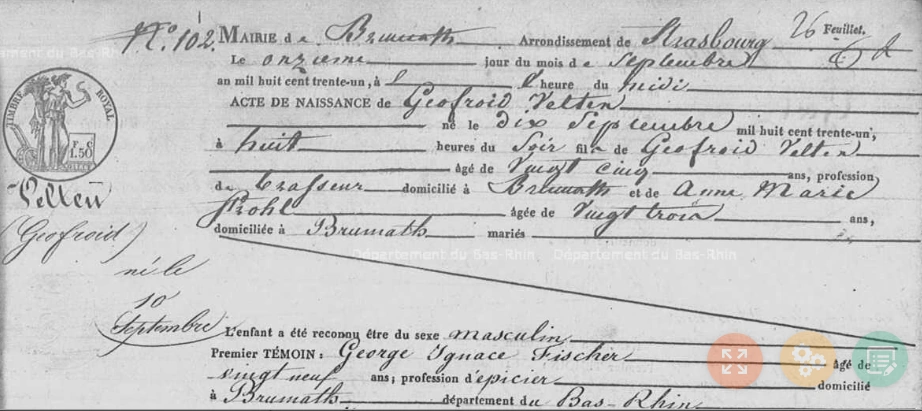 N.º 102. MAIRIE d e Brumath Arrondissement de Strasbourg 26 Feuillet.
Le onzieme jour du mois d e Septembre
an mil huit cent trente-un, à heure du midi
ACTE DE NAISSANCE de Geofroid Velten
né le dix Septembre mil huit cent trente-un,
à huit heures du Soir fils de Geofroid Velten
âgé de Vingt cinq ans, profession
de brasseur domicilié à Brumath et de Anne Marie
Strohl âgée de Vingt trois ans,
domiciliée à Brumath mariés
TIMBRE ROYAL
F. C
1.50
Velten
(Geofroid)
né le
10
Septembre
Département du Bas-Rhin
L'enfant a été reconnu être du sexe masculin
Premier TÉMOIN : George Ignace Fischer âgé de
vingt neuf ans; profession d'epicier domicilié
à Brumath département du Bas-Rhin